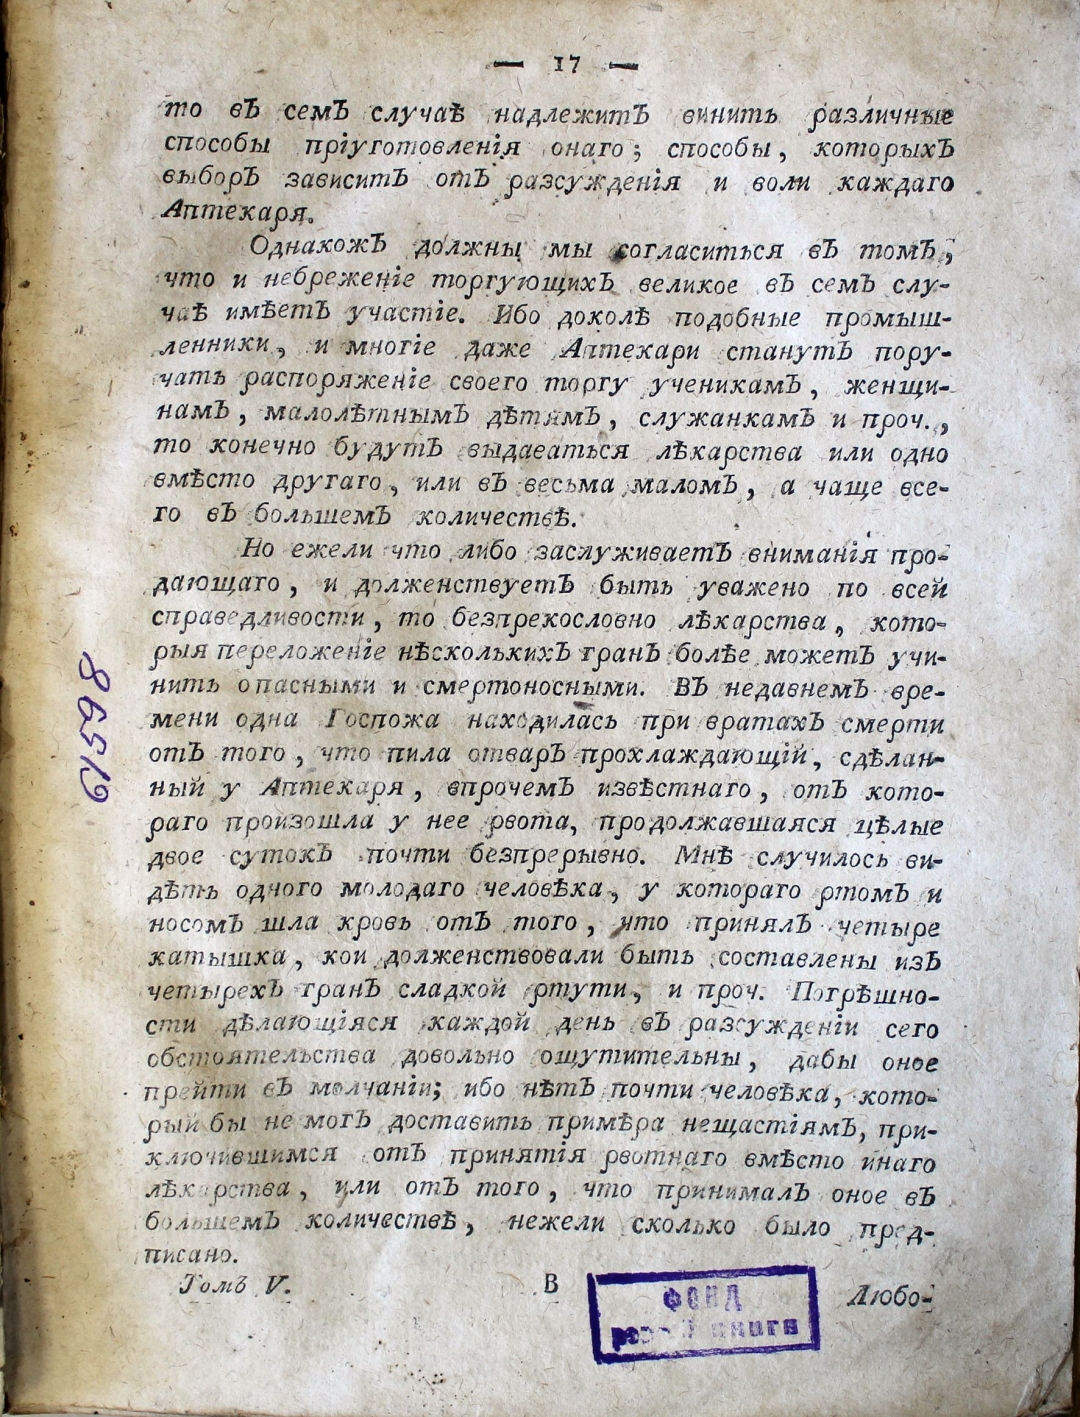 — 17 —
то въ семъ случаѣ надлежитъ винить различные
способы пріуготовленія онаго; способы, которыхъ
выборъ зависитъ отъ разсужденія и воли каждаго
Аптекаря.
Однакожъ должны мы согласиться въ томъ,
что и небреженіе торгующихъ великое въ семъ слу-
чаѣ имѣетъ участіе. Ибо доколѣ подобные промыш-
ленники, и многіе даже Аптекари станутъ пору-
чать распоряженіе своего торгу ученикамъ, женщи-
намъ, малолѣтнымъ дѣтямъ, служанкамъ и проч.,
то конечно будутъ выдаваться лѣкарства или одно
вмѣсто другаго, или въ весьма маломъ, а чаще все-
го въ большемъ количествѣ.
Но ежели что либо заслуживаетъ вниманія про-
дающаго, и долженствуетъ быть уважено по всей
справедливости, то безпрекословно лѣкарства, кото-
рыя переложеніе нѣсколькихъ гранъ болѣе можетъ учи-
нить опасными и смертоносными. Въ недавнемъ вре-
мени одна Госпожа находилась при вратахъ смерти
отъ того, что пила отваръ прохлаждающій, сдѣлан-
ный у Аптекаря, впрочемъ извѣстнаго, отъ кото-
раго произошла у нее рвота, продолжавшаяся цѣлые
двое сутокъ почти безпрерывно. Мнѣ случилось ви-
дѣть одного молодаго человѣка, у котораго ртомъ и
носомъ шла кровь отъ того, что принялъ четыре
катышка, кои долженствовали быть составлены изъ
четырехъ гранъ сладкой ртути, и проч. Погрѣшно-
сти дѣлающіяся каждой день въ разсужденіи сего
обстоятельства довольно ощутительны, дабы оное
прейти въ молчаніи; ибо нѣтъ почти человѣка, кото-
рый бы не могъ доставить примѣра нещастіямъ, при-
ключившимся отъ принятія рвотнаго вмѣсто инаго
лѣкарства, или отъ того, что принималъ оное въ
большемъ количествѣ, нежели сколько было пред-
писано.
Томъ V. В Любо-
ФОНД
редкой книги
91598